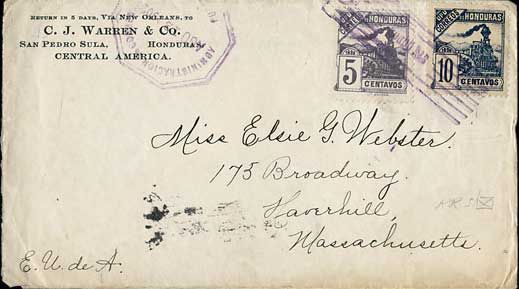 RETURN IN 5 DAYS, VIA NEW ORLEANS, TO
C. J. WARREN & CO.
SAN PEDRO SULA, HONDURAS,
CENTRAL AMERICA.
ADMINISTRACION
UPU
CORREOS
HONDURAS
5
CENTAVOS
UPU
CORREOS
HONDURAS
10
CENTAVOS
Miss Elsie G. Webster.
175 Broadway.
Haverhill,
Massachusetts.
E. U. de A.